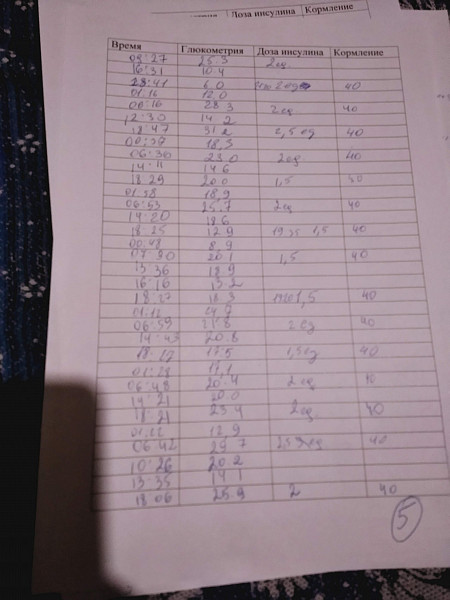 Доза инсулина Кормление
Время Глюкометрия Доза инсулина Кормление
09:27 25.3 2ед
16:31 10.4
23:41 6.0 40
01:16 12.0
06:16 28.3 2ед 40
12:30 14.2
18:47 31.2 2,5 ед 40
00:29 18,3
06:30 23.0 2ед 40
14:11 14.6
18:29 20.0 1,5 40
01:58 18,9
06:53 25,7 2ед 40
14:20 18.6
18:25 12.9 1,5 40
00:48 8.9
07:20 20.1 1,5 40
13:36 18.9
16:10 13.2
18:27 18.3 1,5 40
01:12
06:59 21.8 2 ед 40
14:43 20.8
18:22 17.5 1,5ед 40
01:28 17,1
06:48 20.4 2ед 40
14:21 20.0
18:21 23.4 2ед 40
01:22 12.9
06:42 29.7 40
10:26 20.2
13:35 14.1
18:06 25.9 2 40
5